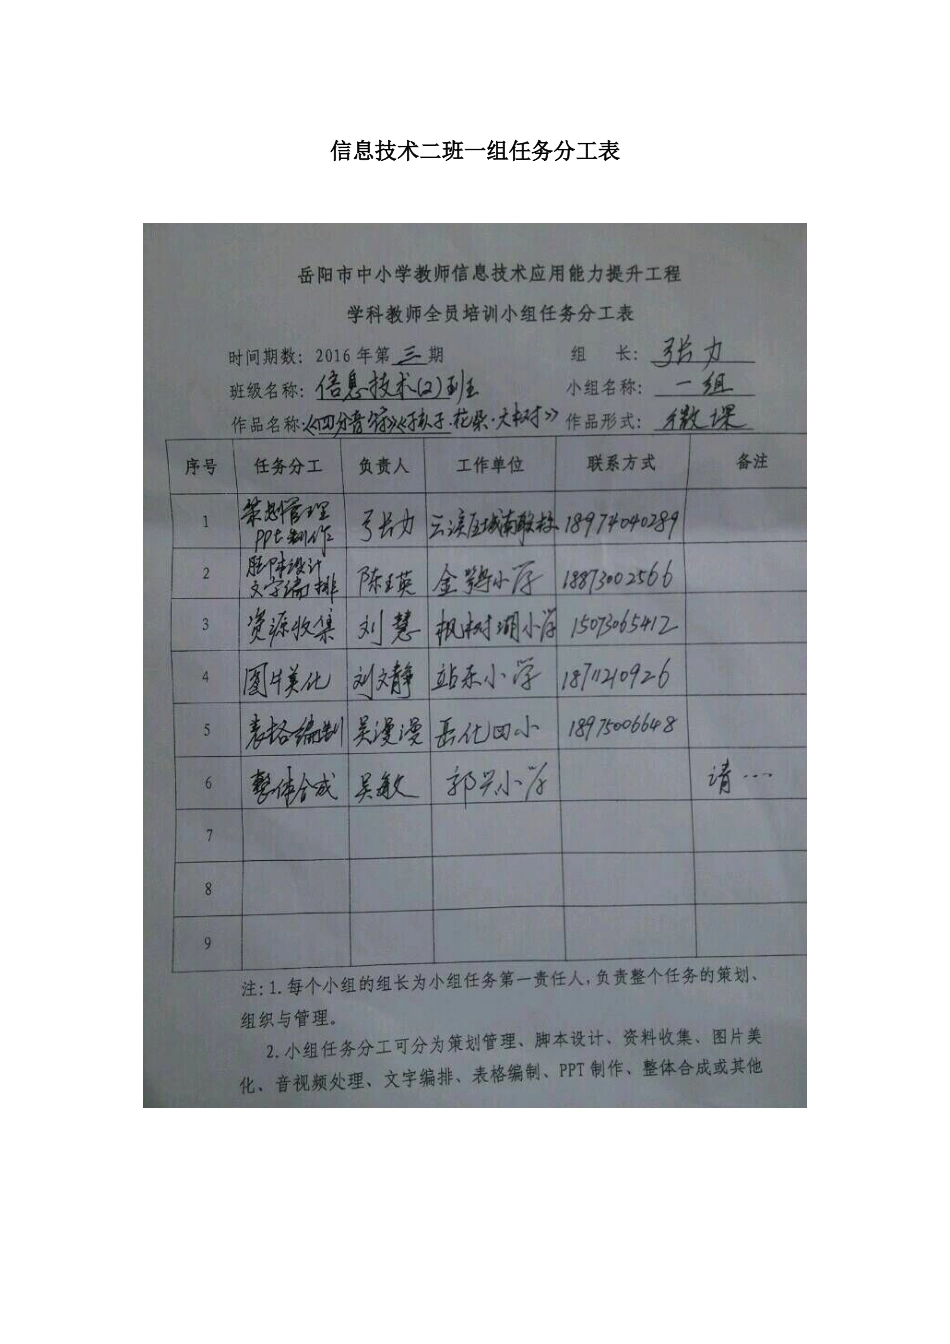 信息技术二班一组任务分工表
岳阳市中小学教师信息技术应用能力提升工程
学科教师全员培训小组任务分工表
时间期数：2016 年第 三 期 组 长： 张力
班级名称：信息技术(2)班 小组名称： 一组
作品名称：《四分音符》《孩子·花朵·大树》 作品形式： 微课
序号 任务分工 负责人 工作单位 联系方式 备注
1 策划管理 PPt制作 张力 云溪区城南 18974040289
2 脚本设计 文字编排 陈玉英 金鹗小学 18873002566
3 资源收集 刘慧 枫树湖小学 15073065412
4 图片美化 刘文静 站东小学 18711210926
5 表格编制 吴漫漫 岳化四小 18975006648
6 整体合成 吴敏 郭兴小学 请…
7
8
9
注：1.每个小组的组长为小组任务第一责任人，负责整个任务的策划、
组织与管理。
2.小组任务分工可分为策划管理、脚本设计、资料收集、图片美
化、音视频处理、文字编排、表格编制、PPT 制作、整体合成或其他